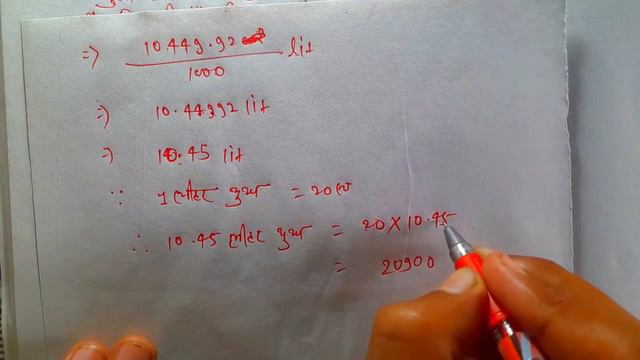 => 10449.92 / 1000 lit
=> 10.44992 lit
=> 10.45 lit
∵ 1 लीटर दुध = 20
∴ 10.45 लीटर दुध = 20 × 10.45
= 20900